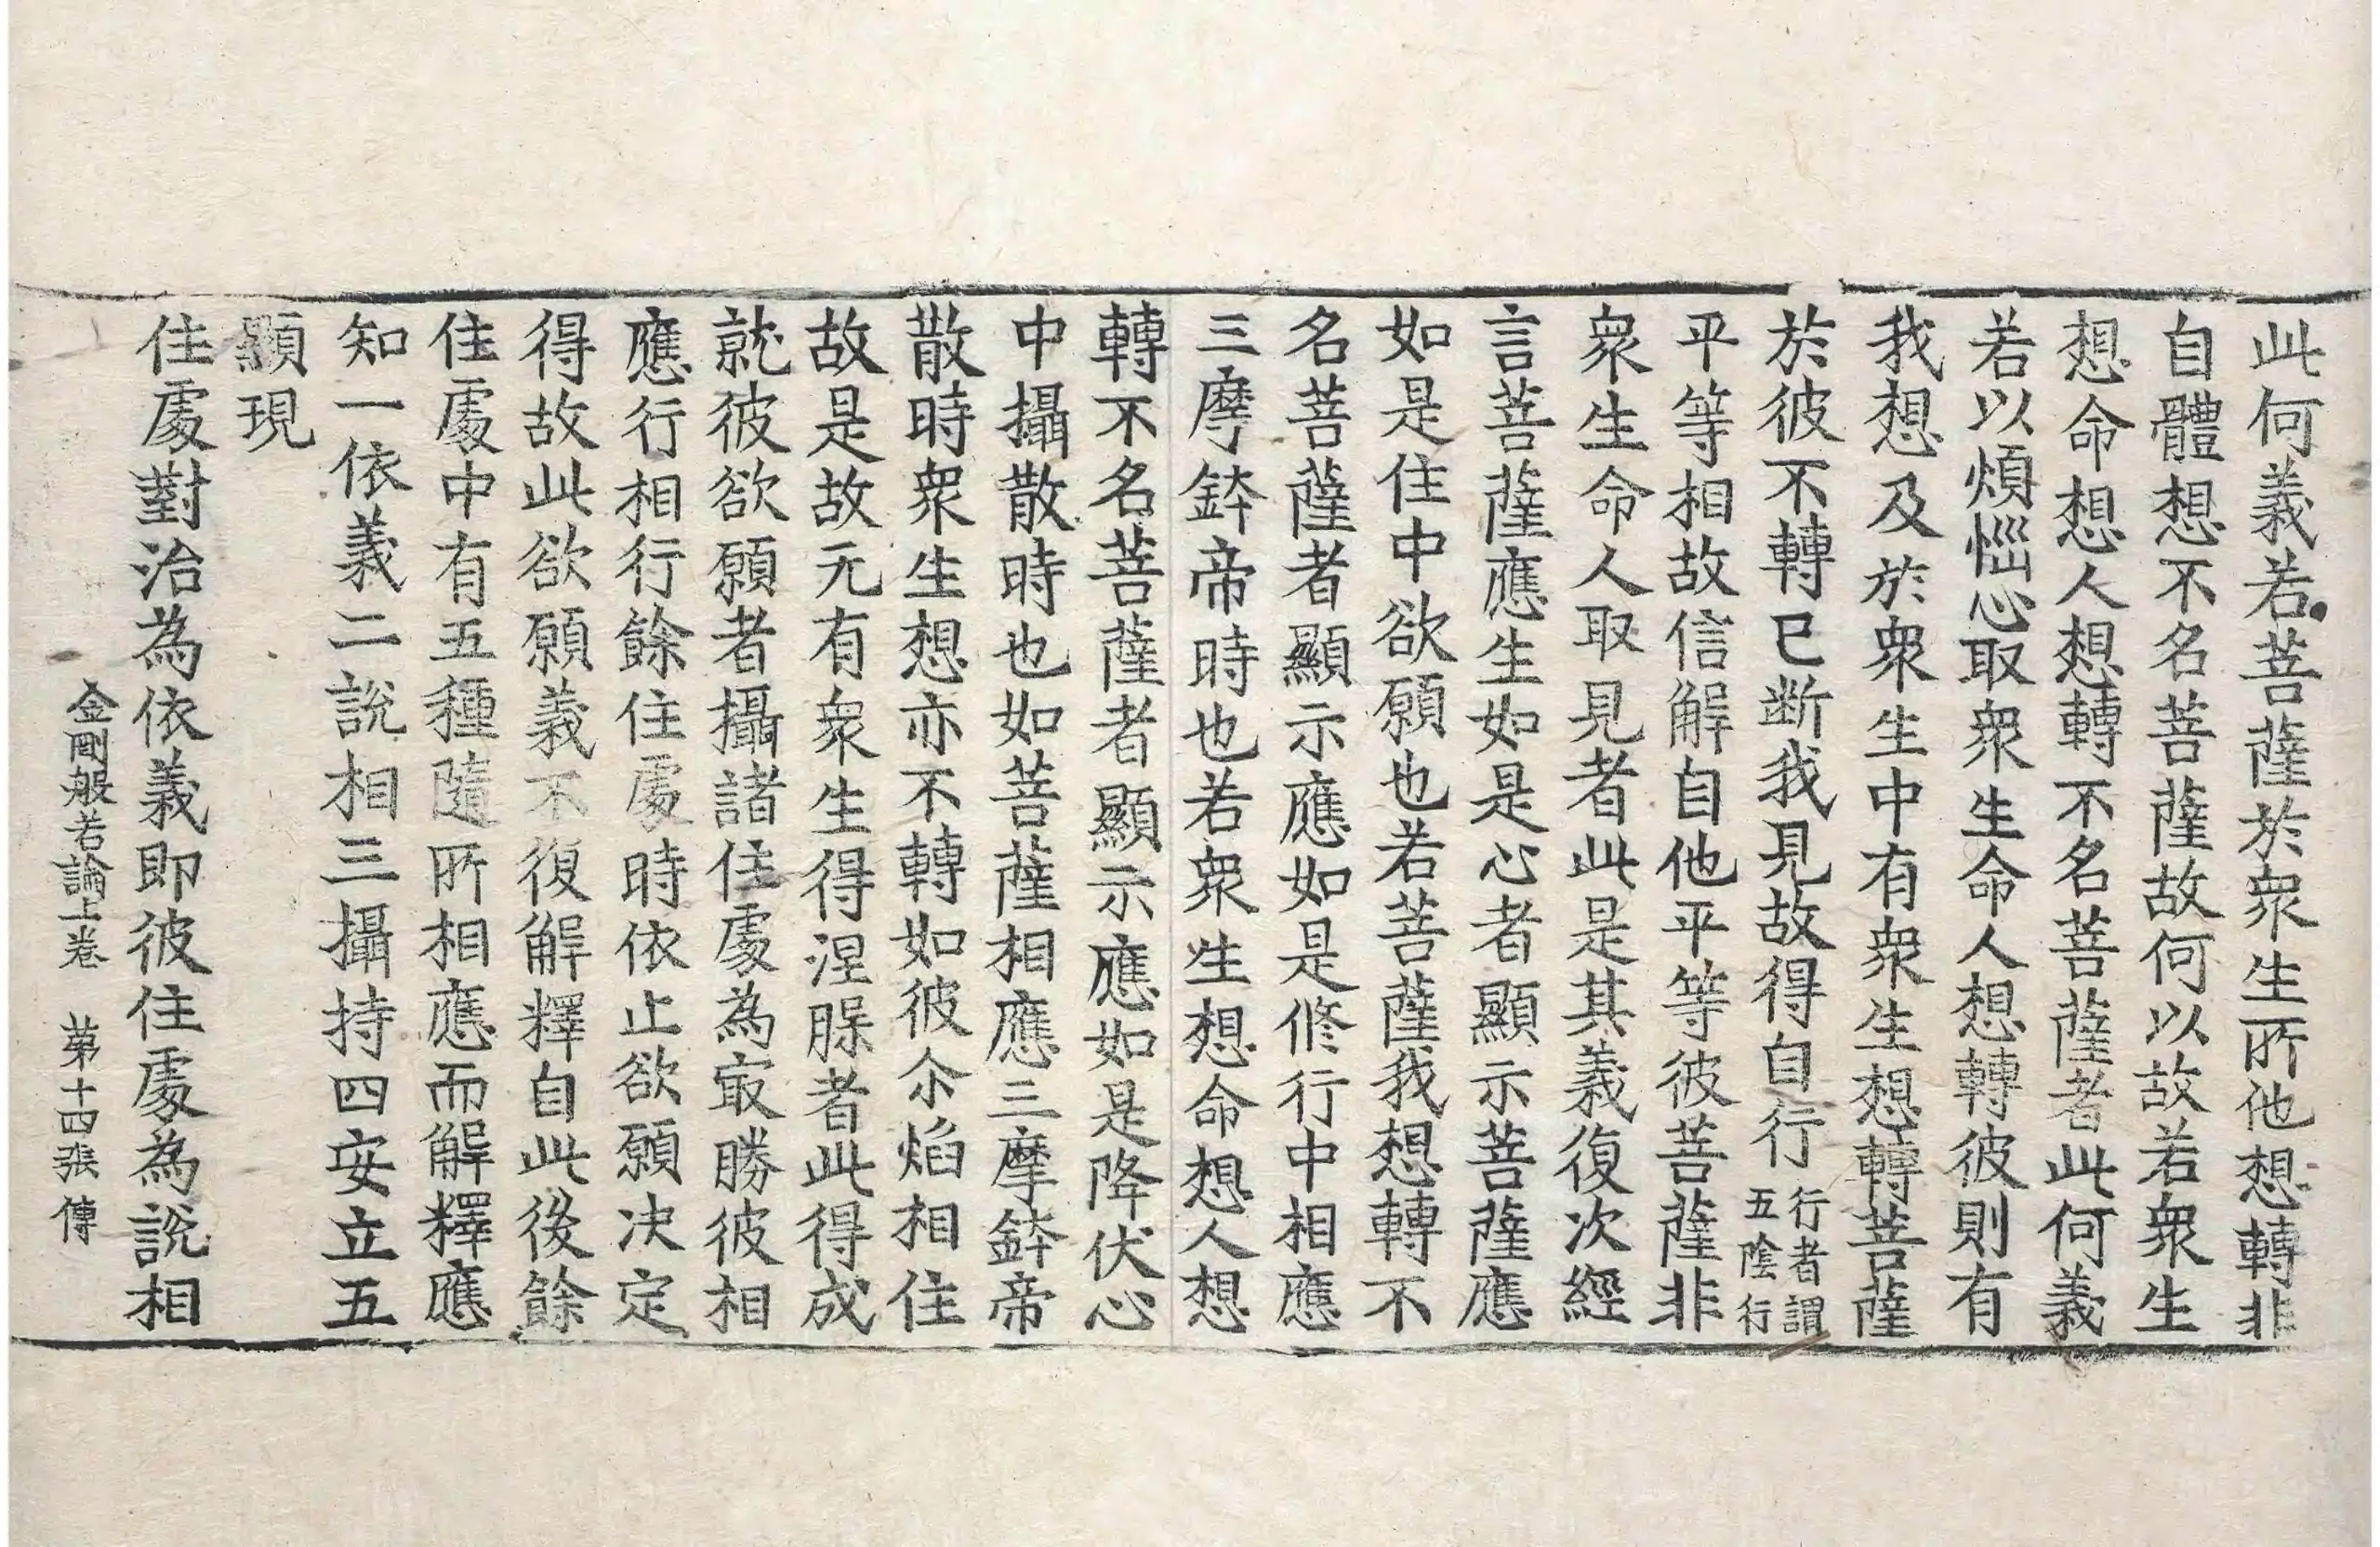 此何義若菩薩於衆生所他想轉非
自體想不名菩薩故何以故若衆生
想命想人想轉不名菩薩者此何義
若以煩惱心取衆生命人想轉彼則有
我想及於衆生中有衆生想轉菩薩
於彼不轉已断我見故得自行行者謂五陰行
平等相故信解自他平等彼菩薩非
衆生命人取見者此是其義復次經
言菩薩應生如是心者顯示菩薩應
如是住中欲願也若菩薩我想轉不
名菩薩者顯示應如是修行中相應
三摩鉢帝時也若衆生想命想人想
轉不名菩薩者顯示應如是降伏心
中攝散時也如菩薩相應三摩鉢帝
散時衆生想亦不轉如彼尒焰相住
故是故无有衆生得涅槃者此得成
就彼欲願者攝諸住處為㝡勝彼相
應行相行餘住處時依止欲願决定
得故此欲願義不復解釋自此後餘
住處中有五種隨所相應而解釋應
知一依義二說相三攝持四安立五
顯現
住處對治為依義即彼住處為說相
金剛般若論上卷 第十四張 傳